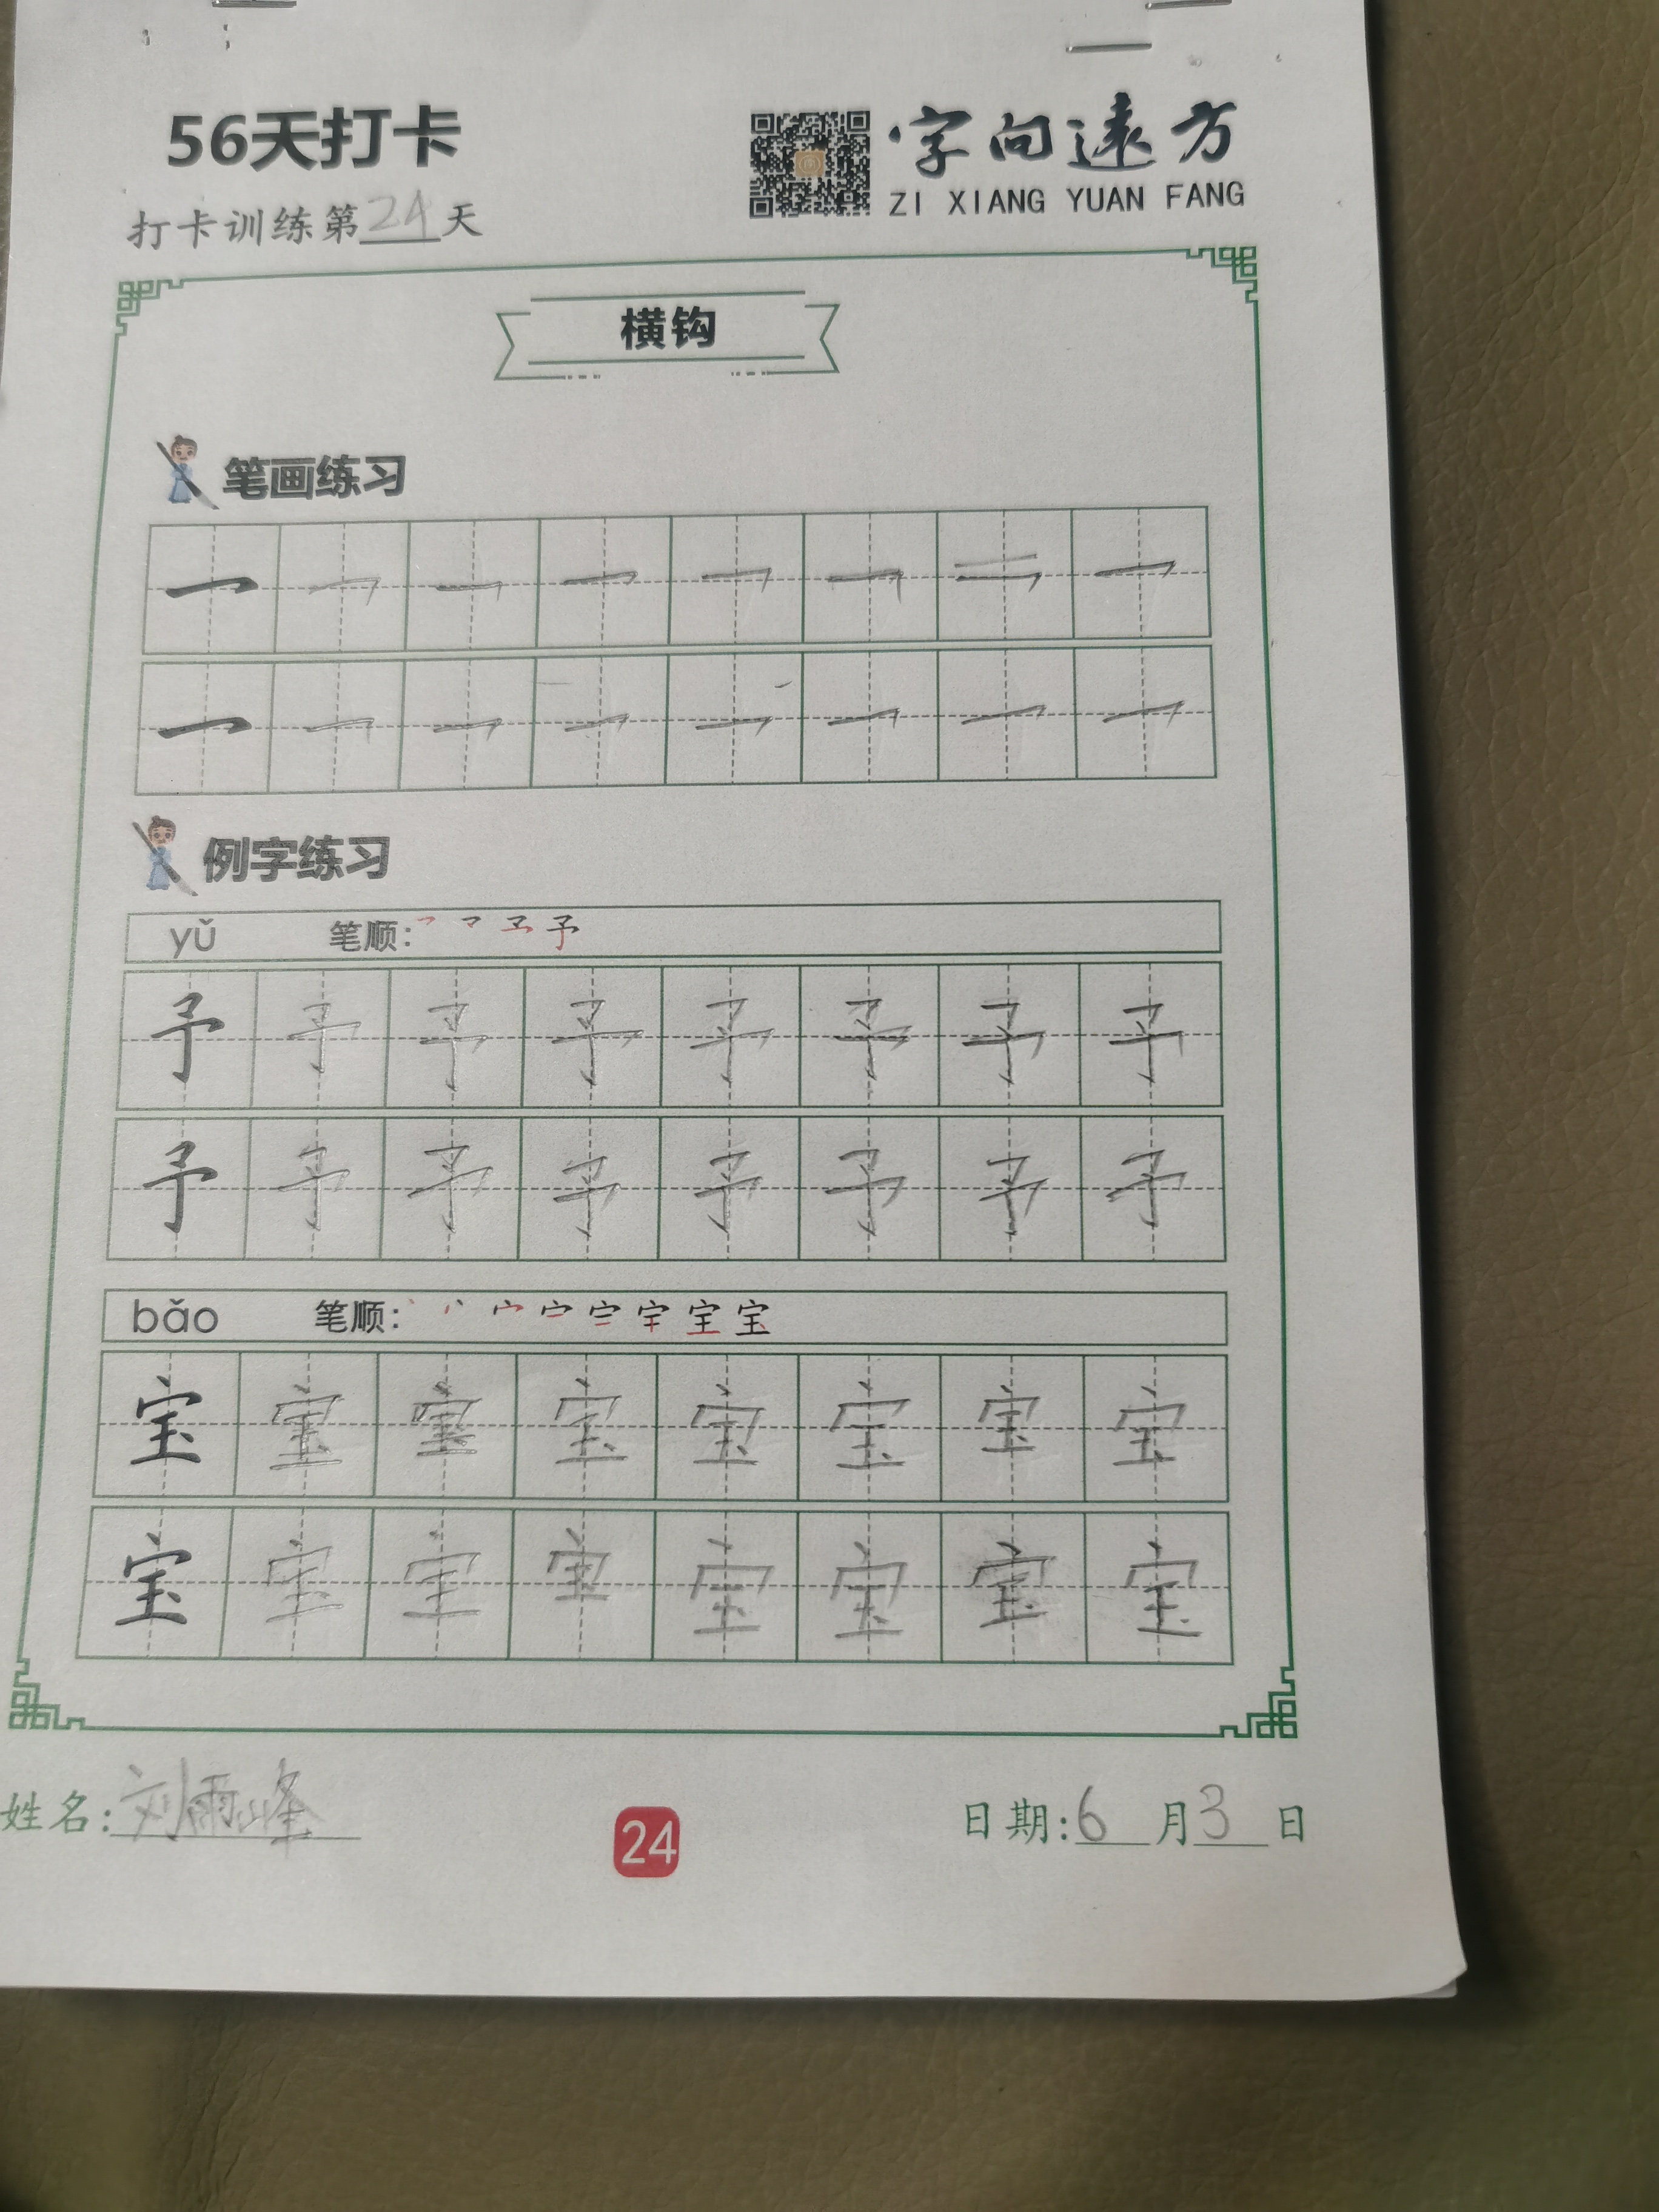 56天打卡
字向遠方
ZI XIANG YUAN FANG
打卡训练第24天
横钩
笔画练习
例字练习
yǔ 笔顺：
予 予 予 予 予 予 予 予
予 予 予 予 予 予 予 予
bǎo 笔顺： 宝
宝 宝 宝 宝 宝 宝 宝 宝
宝 宝 宝 宝 宝 宝 宝 宝
姓名：刘雨峰
24
日期：6月3日